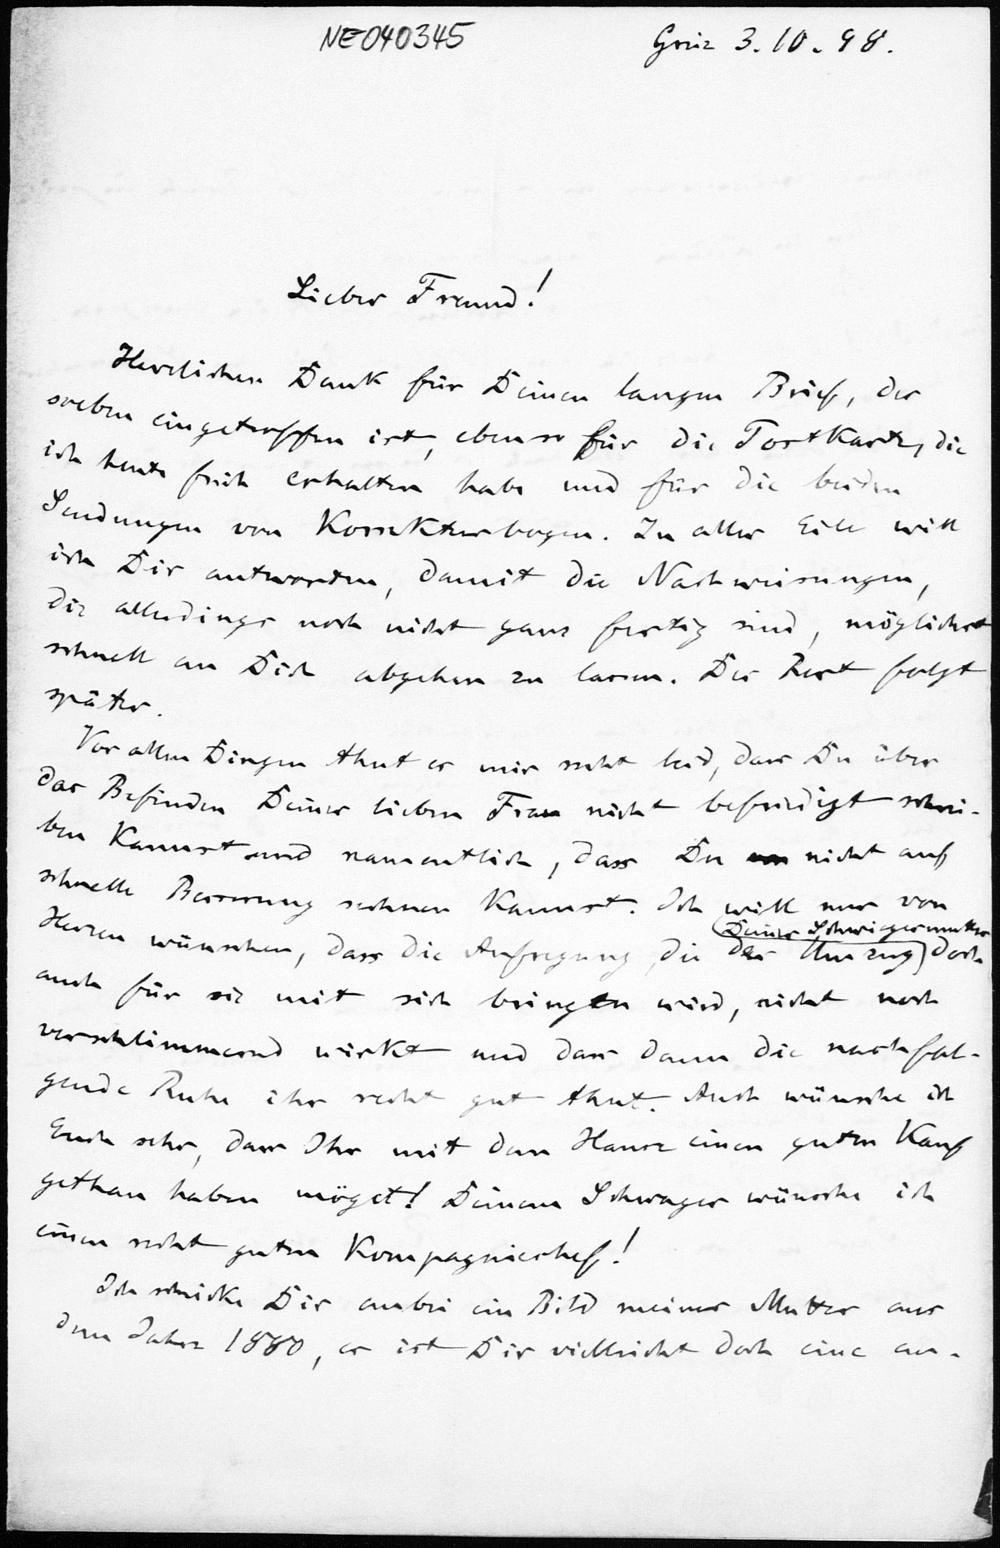 NE040345
Greiz 3.10.98.
Lieber Freund!
Herzlichen Dank für Deinen langen Brief, der
soeben eingetroffen ist, ebenso für die Postkarte, die
ich heute früh erhalten habe und für die beiden
Sendungen von Korrekturbogen. In aller Eile will
ich Dir antworten, damit die Nachweisungen,
die allerdings noch nicht ganz fertig sind, möglichst
schnell an Dich abgehen zu lassen. Der Rest folgt
später.
Vor allen Dingen thut es mir recht leid, dass Du über
das Befinden Deiner lieben Frau nicht befriedigt schrei-
ben kannst und namentlich, dass Du nicht auf
schnelle Besserung rechnen kannst. Ich will nur von
Herzen wünschen, dass die Aufregung, die der Umzug Deiner Schwiegermutter doch
auch für sie mit sich bringen wird, nicht noch
verschlimmernd wirkt und dass dann die nachfol-
gende Ruhe ihr recht gut thut. Auch wünsche ich
Euch sehr, dass Ihr mit dem Hause einen guten Kauf
gethan haben möget! Deinem Schwager wünsche ich
einen recht guten Kompagniechef!
Ich schicke Dir anbei ein Bild meiner Mutter aus
dem Jahre 1880, es ist Dir vielleicht doch eine an-